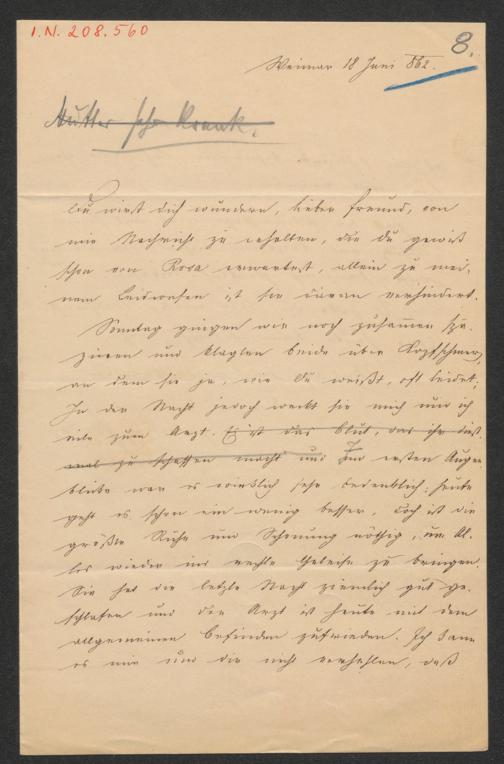 I.N. 208.560
8.
Weimar 18 Juni 862.
Mutter sehr krank.
Du wirst dich wundern, lieber Freund, von
mir Nachricht zu erhalten, die du gewiß
schon von Rosa erwartest, allein zu mei-
nem Leidwesen ist sie daran verhindert.
Sonntag gingen wir noch zusammen spa-
zieren und klagten beide über Kopfschmerz,
an dem sie ja, wie Du weißt, oft leidet;
In der Nacht jedoch weckt sie mich und ich
eile zum Arzt. Es ist das Blut, das ihr dies-
mal zu schaffen macht und Im ersten Augen-
blicke war es wirklich sehr bedenklich; heute
geht es schon ein wenig besser, doch ist die
größte Ruhe und Schonung nöthig, um Al-
les wieder ins rechte Geleise zu bringen.
Sie hat die letzte Nacht ziemlich gut ge-
schlafen und der Arzt ist heute mit dem
allgemeinen Befinden zufrieden. Ich kann
es mir und dir nicht verhehlen, daß